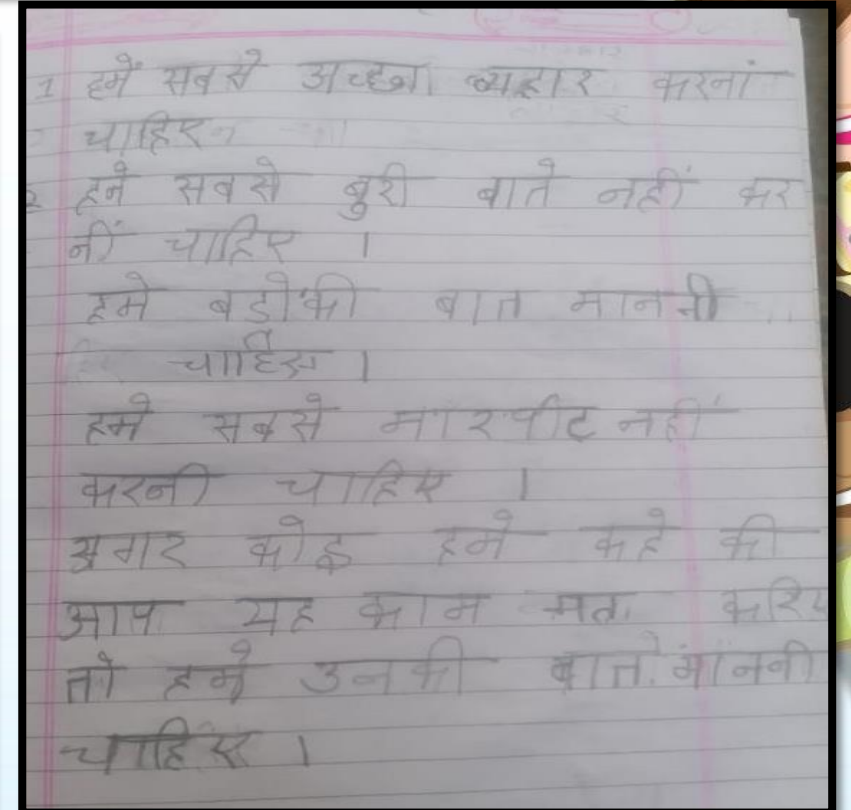 1 हमें सबसे अच्छा व्यहार करनां
चाहिए
2 हने सबसे बुरी बाते नहीं कर
नीं चाहिए ।
हमे बडो की बात माननी
चाहिए ।
हमे सबसे मारपीट नहीं
करनी चाहिए ।
अगर कोइ हमे कहे की
आप यह काम मत करिए
तो हमे उनकी बाते माननी
चाहिए ।